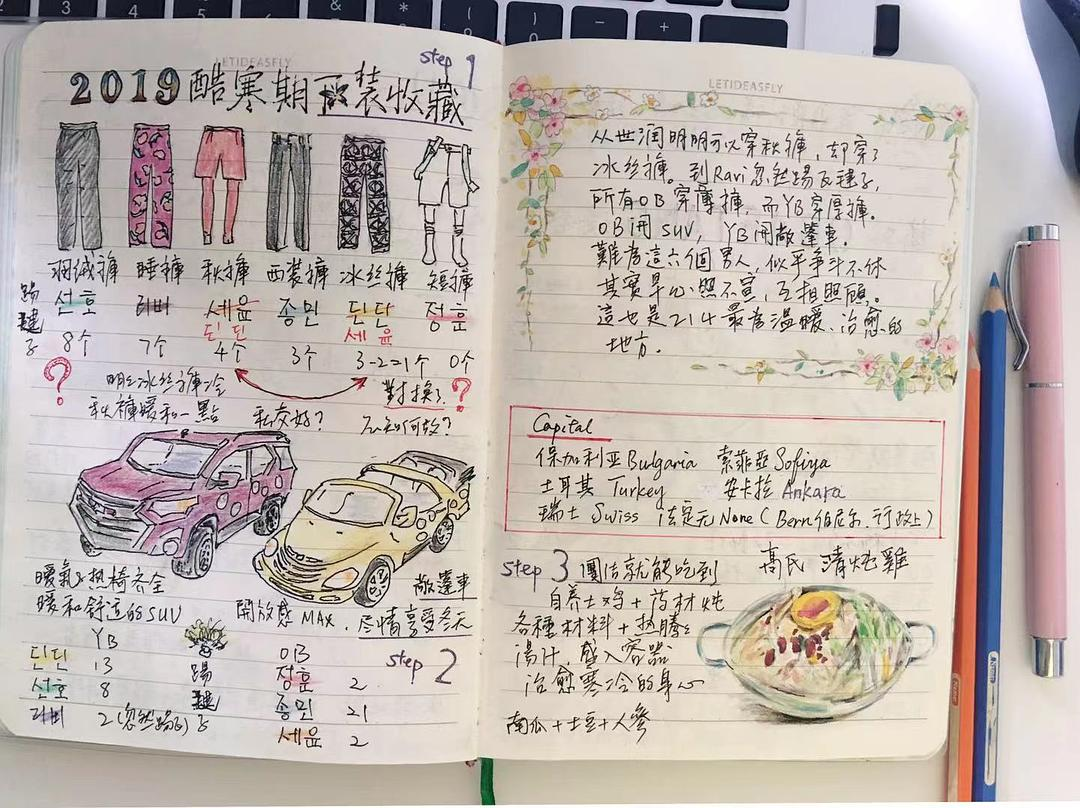 LETIDEASFLY
step 1
2019酷寒期下装收藏
羽绒褲 睡褲 秋褲 西裝褲 冰丝褲 短褲
踢毽子
선호 라비 세윤 종민 딘딘 정훈
딘딘 세윤
8个 7个 4个 3个 3-2=1个 0个
? 明明冰丝褲冷 對換了?
秋褲暖和一點 私交好? 不知何故?
暖氣&热椅齐全
暖和舒适的SUV
敞篷車
開放感 MAX. 尽情享受冬天
step 2
YB 踢毽子 OB
딘딘 13 정훈 2
선호 8 종민 21
라비 2(忽然踢的) 세윤 2
LETIDEASFLY
从世润明明可以穿秋褲,却穿了
冰丝褲。到Ravi忽然踢飞毽子,
所有OB穿薄褲,而YB穿厚褲.
OB用SUV, YB用敞篷車.
難為這六個男人,似乎爭斗不休
其實早心照不宣,互相照顧。
這也是214最為温暖、治愈的
地方.
Capital
保加利亚Bulgaria 索菲亞Sofiya
土耳其 Turkey 安卡拉 Ankara
瑞士 Swiss 法定无None(Bern伯尼尔.行政上)
step 3 團结就能吃到 高氏 清炖雞
自养土鸡+药材炖
各種材料+热騰騰
湯汁.盛入容器
治愈寒冷的身心
南瓜+土豆+人參